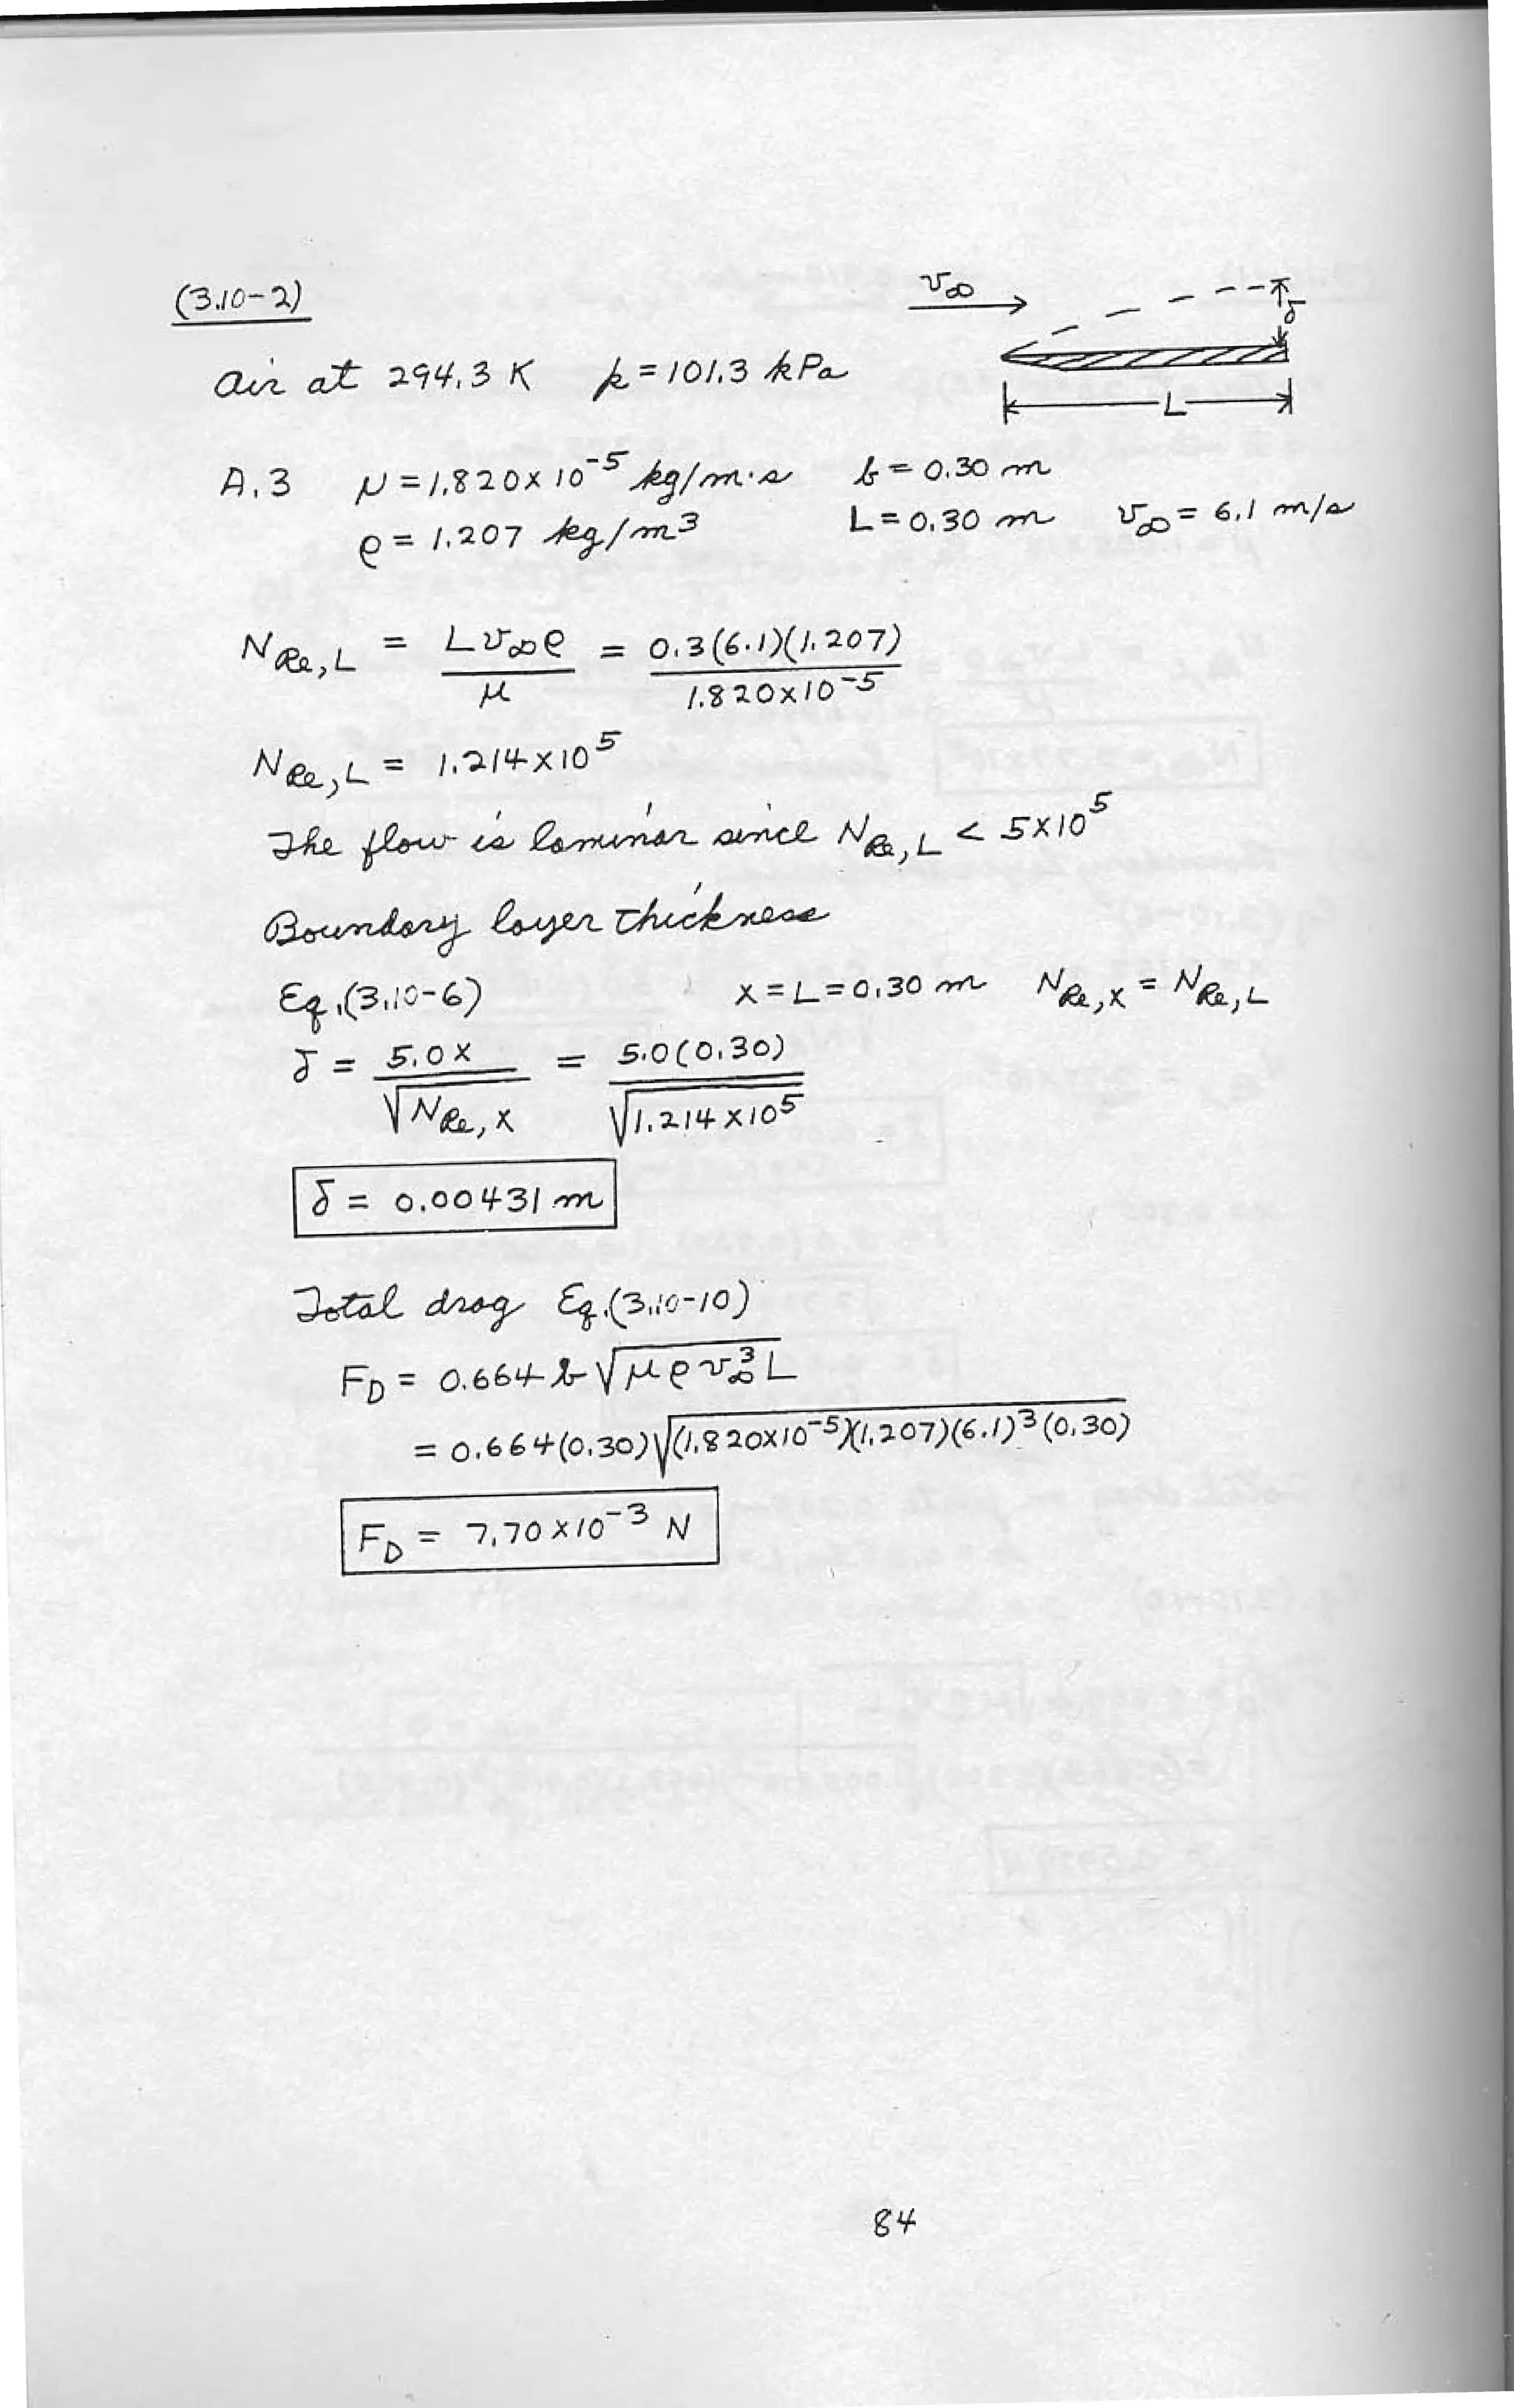 (3.10-2)
v∞
δ
L
Air at 294.3 K p = 101.3 kPa
A.3 μ = 1.820 x 10^-5 kg/m·s b = 0.30 m
ρ = 1.207 kg/m^3 L = 0.30 m v∞ = 6.1 m/s
N_Re,L = L v∞ ρ / μ = 0.3(6.1)(1.207) / 1.820x10^-5
N_Re,L = 1.214 x 10^5
The flow is laminar since N_Re,L < 5x10^5
Boundary layer thickness
Eq.(3.10-6) x = L = 0.30 m N_Re,x = N_Re,L
δ = 5.0 x / √N_Re,x = 5.0(0.30) / √1.214 x 10^5
δ = 0.00431 m
Total drag Eq.(3.10-10)
F_D = 0.664 b √μ ρ v∞^3 L
= 0.664(0.30)√(1.820x10^-5)(1.207)(6.1)^3(0.30)
F_D = 7.70 x 10^-3 N
84